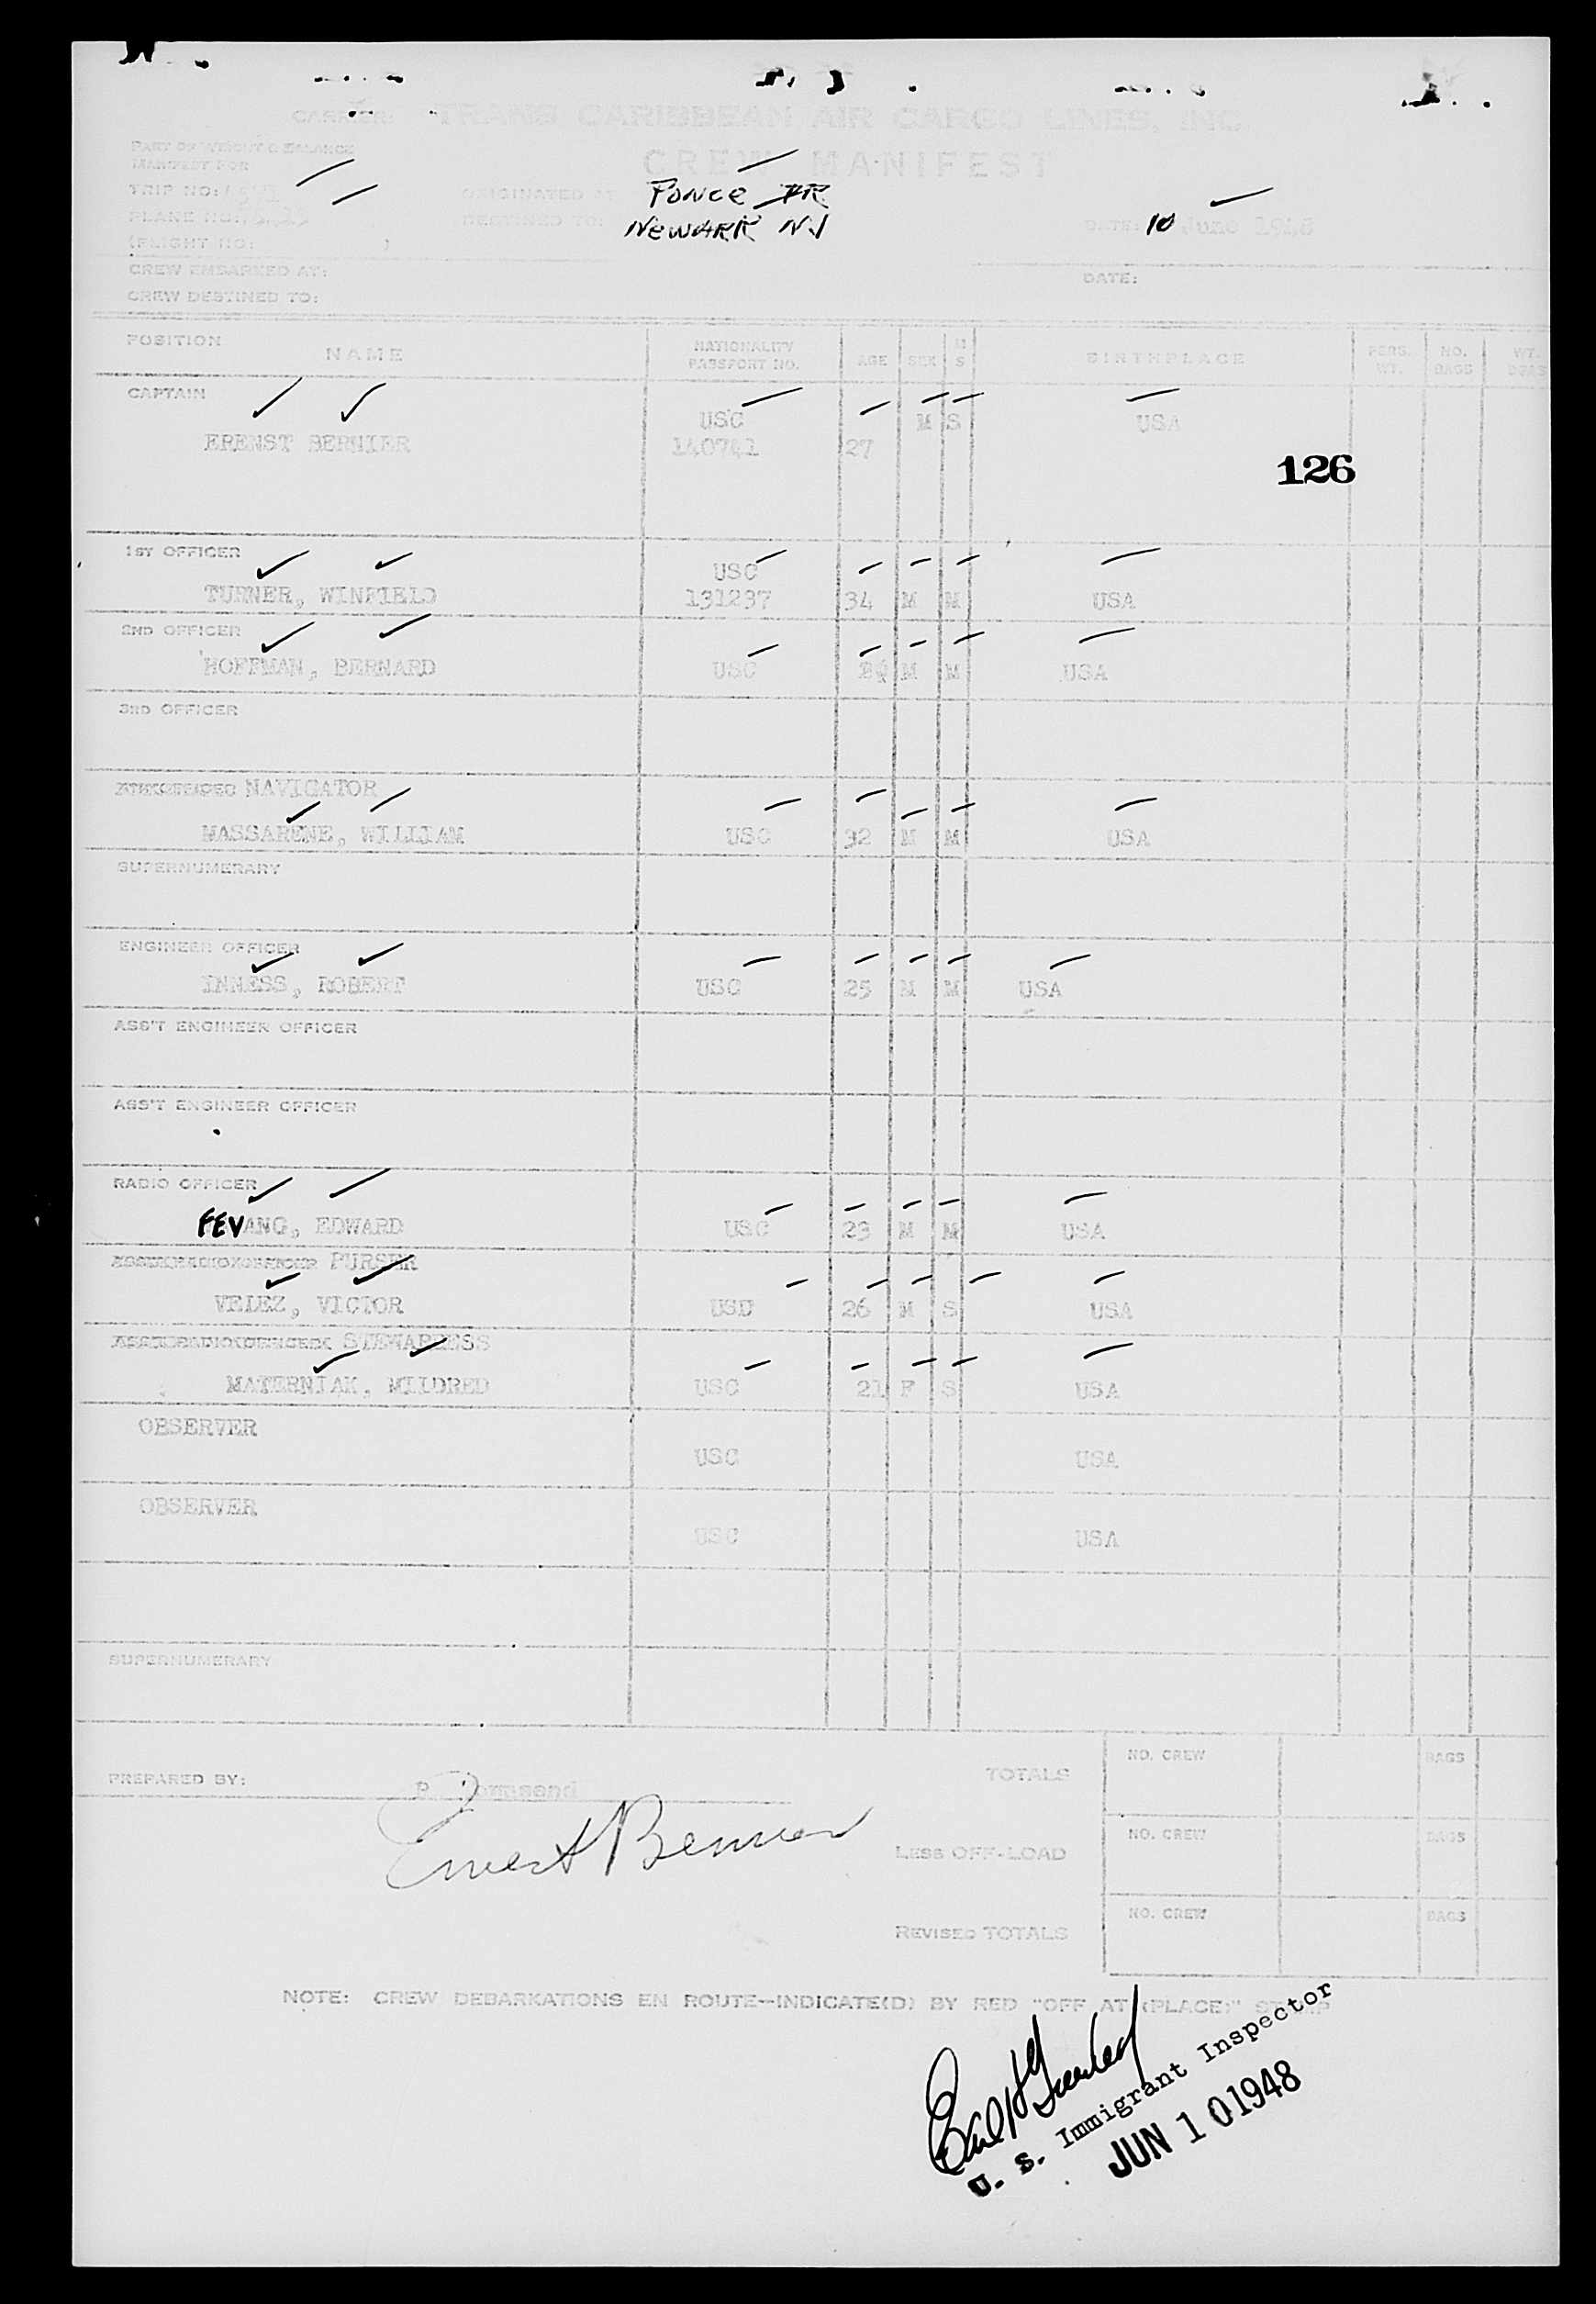 CARRIER: TRANS CARIBBEAN AIR CARGO LINES, INC.
CREW MANIFEST
PART OF WEIGHT & BALANCE
MANIFEST FOR
TRIP NO:
ORIGINATED AT Ponce PR
PLANE NO:
DESTINED TO: Newark NJ
DATE: 10 June 1948
(FLIGHT NO: )
CREW EMBARKED AT:
DATE:
CREW DESTINED TO:
POSITION NAME NATIONALITY PASSPORT NO. AGE SEX M S BIRTHPLACE PERS. WT. NO. BAGS WT. BAGS
CAPTAIN
USC M S USA
ERENST BERNIER 140741 27
126
1ST OFFICER
USC
TURNER, WINFIELD 131237 34 M M USA
2ND OFFICER
HOFFMAN, BERNARD USC M M USA
3RD OFFICER
NAVIGATOR
MASSARENE, WILLIAM USC 32 M M USA
SUPERNUMERARY
ENGINEER OFFICER
INNESS, ROBERT USC 25 M M USA
ASS'T ENGINEER OFFICER
ASS'T ENGINEER OFFICER
RADIO OFFICER
FEVANG, EDWARD USC 23 M M USA
PURSER
VELEZ, VICTOR USD 26 M S USA
STEWARDESS
MATERNIAK, MILDRED USC 21 F S USA
OBSERVER
USC USA
OBSERVER
USC USA
SUPERNUMERARY
PREPARED BY: Townsend
Ernest Bernier
TOTALS NO. CREW BAGS
LESS OFF-LOAD NO. CREW BAGS
REVISED TOTALS NO. CREW BAGS
NOTE: CREW DEBARKATIONS EN ROUTE—INDICATE(D) BY RED "OFF AT (PLACE)" STAMP
U. S. Immigrant Inspector
JUN 10 1948